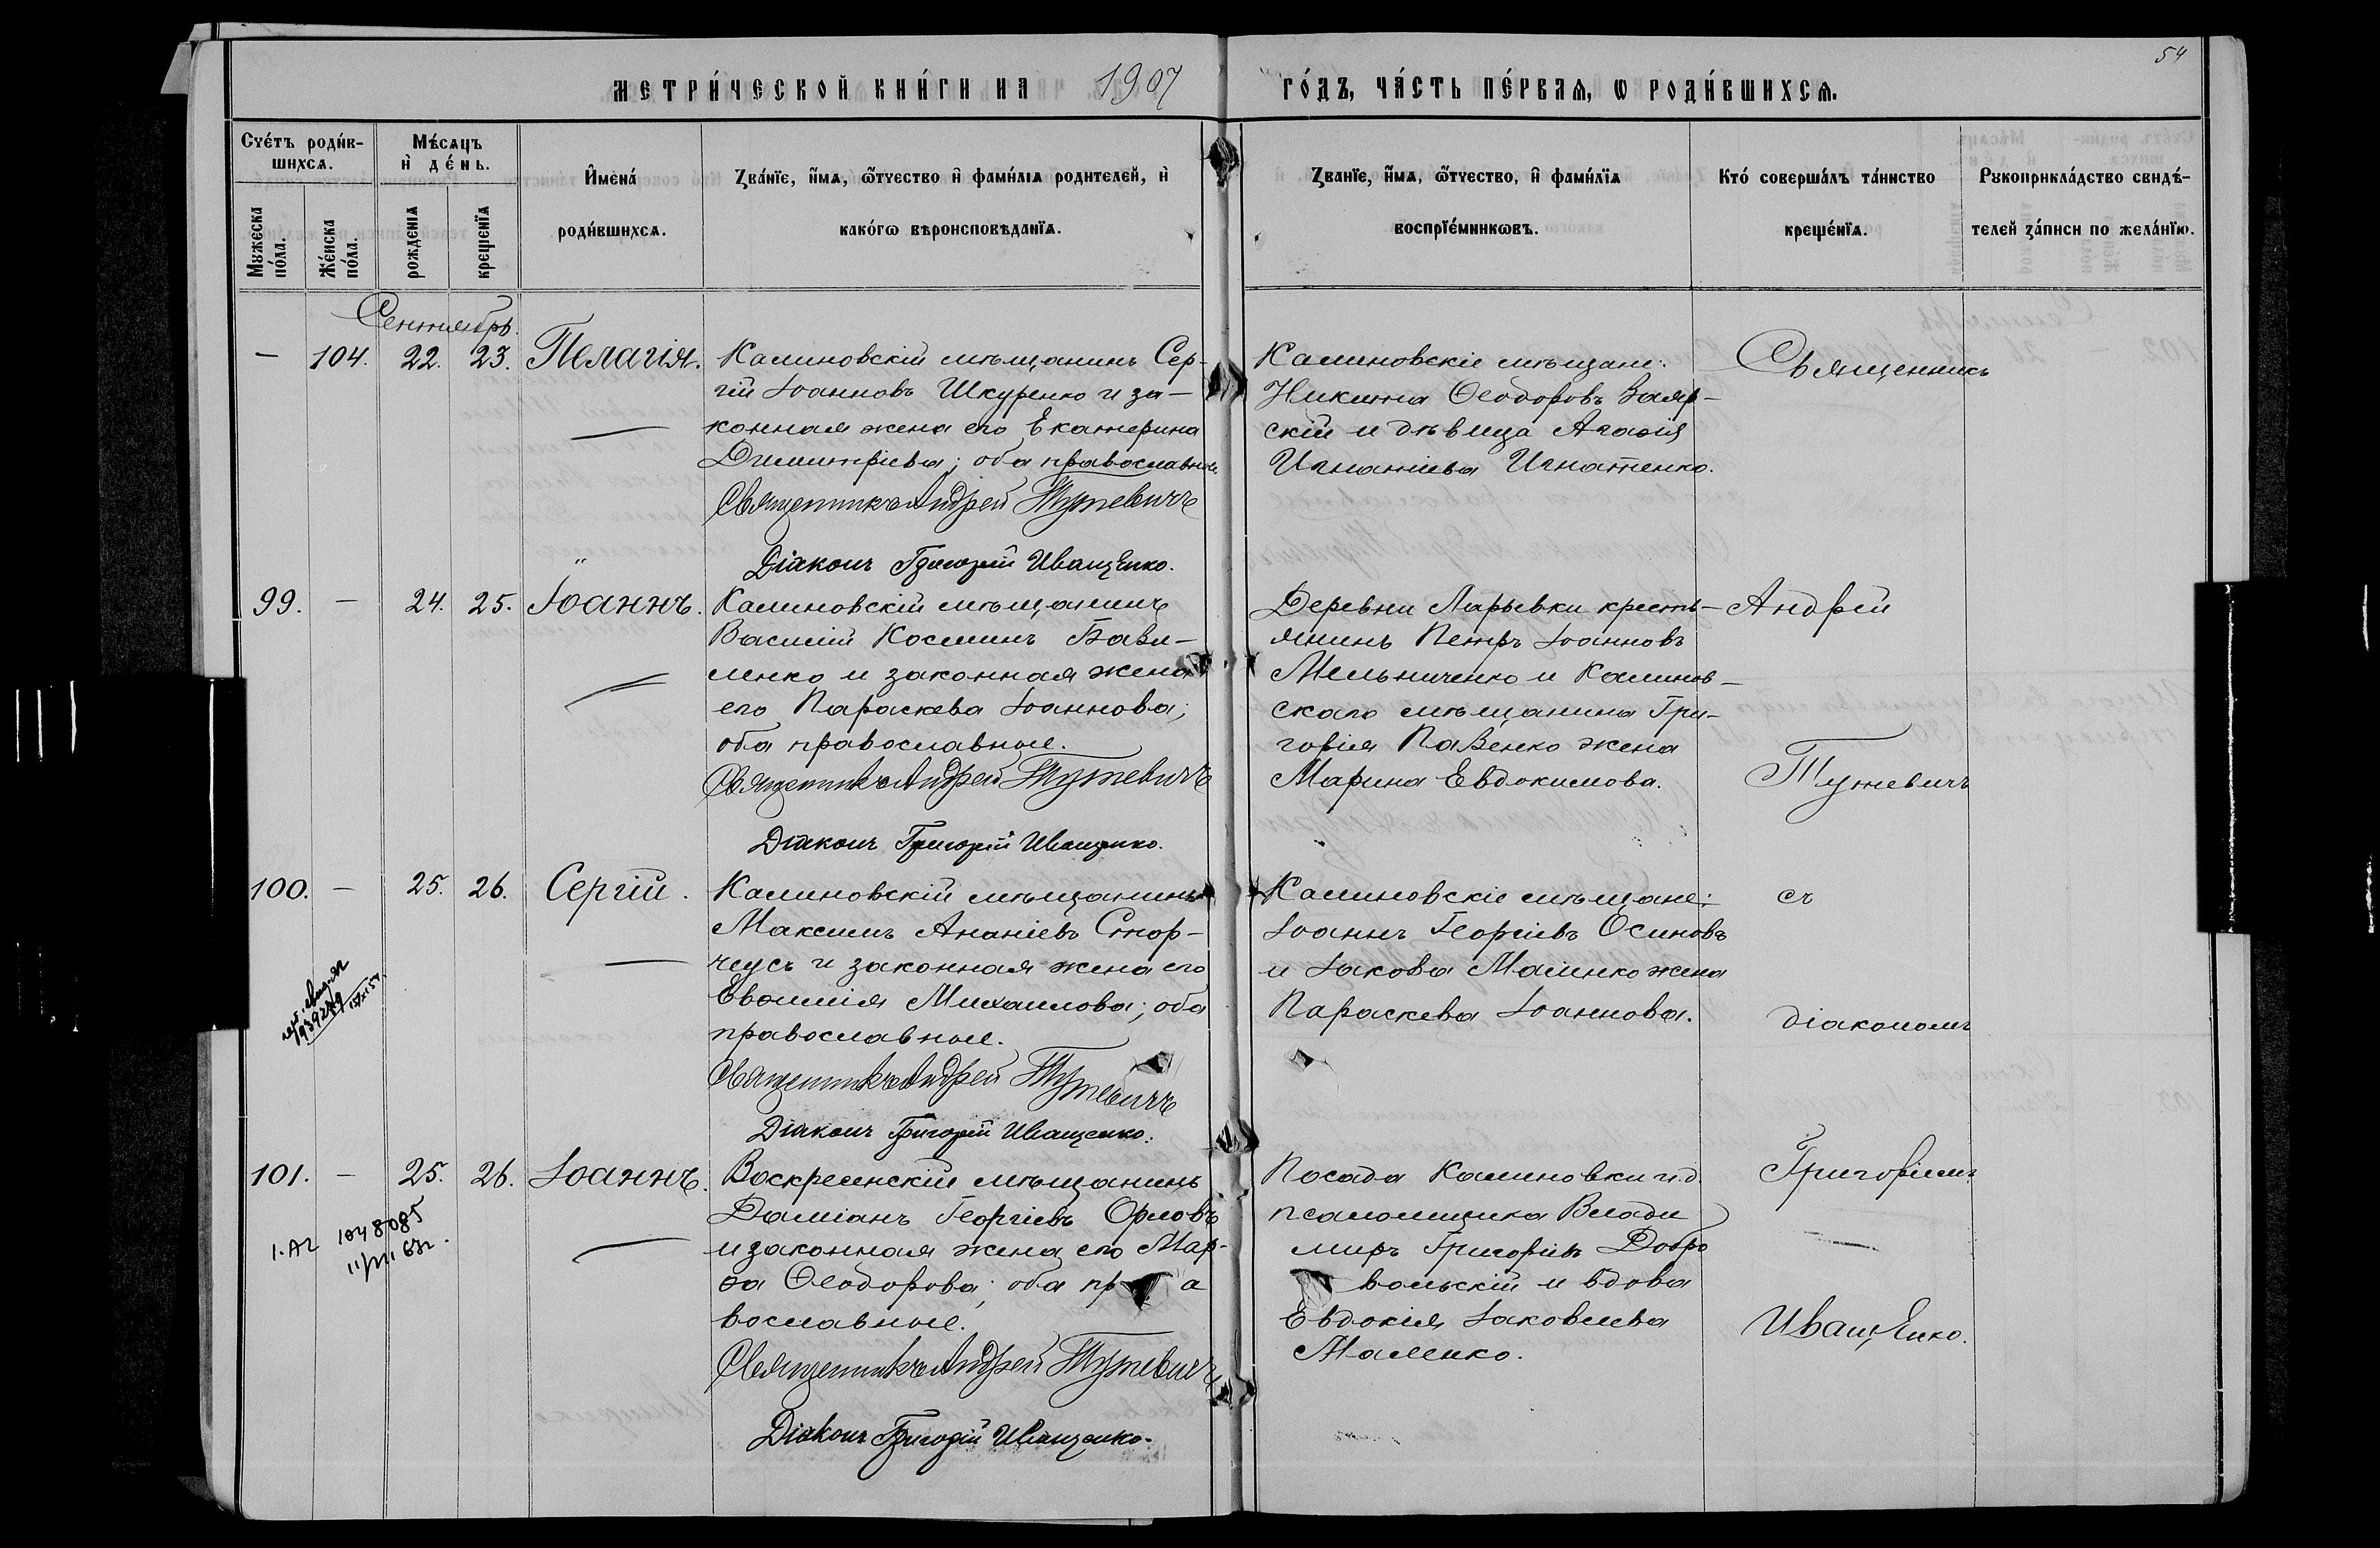 54
МЕТРИ́ЧЕСКОЙ КНИ́ГИ НА 1907 ГО́ДЪ, ЧА́СТЬ ПЕ́РВАѦ, Ѡ РОДИ́ВШИХСѦ.
Сче́тъ роди́в-
шихсѧ.
Мѣ́сѧцъ
и҆ де́нь.
Мꙋжеска
по́ла.
Же́нска
по́ла.
рожденїѧ
крещенїѧ
И҆мена́
роди́вшихсѧ.
Зва́нїе, и҆́мѧ, ѻ҆́тчество и҆ фами́лїѧ родителей, и҆
како́гѡ вѣроисповѣданїѧ.
Званїе, и҆́мѧ, ѻ҆́тчество, и҆ фами́лїѧ
воспрїе́мниковъ.
Кто́ соверша́лъ та́инство
креще́нїѧ.
Рꙋкоприкла́дство свидѣ́-
телей за́писи по жела́нїю.
Сентябрь.
— 104. 22. 23. Пелагія.
Калиновскій мѣщанинъ Сер-
гій Іоанновъ Шкуренко и за-
конная жена его Екатерина
Димитріева; оба православные.
Священникъ Андрей Тутевичъ
Діаконъ Григорій Иващенко.
Калиновскіе мѣщане:
Никита Ѳеодоровъ Заяр-
скій и дѣвица Агаѳія
Игнатіева Игнатенко.
Священникъ
99. — 24. 25. Іоаннъ.
Калиновскій мѣщанинъ
Василій Косминъ Бави-
ленко и законная жена
его Параскева Іоаннова;
оба православные.
Священникъ Андрей Тутевичъ
Діаконъ Григорій Иващенко.
Деревни Ларьевки кресть-
янинъ Петръ Іоанновъ
Мельниченко и Калинов-
скаго мѣщанина Гри-
горія Павенко жена
Марина Евдокимова.
Андрей
Тутевичъ
100. — 25. 26. Сергій.
Калиновскій мѣщанинъ
Максимъ Ананіевъ Стор-
чеусъ и законная жена его
Евѳимія Михаилова; оба
православные.
Священникъ Андрей Тутевичъ
Діаконъ Григорій Иващенко.
Калиновскіе мѣщане:
Іоаннъ Георгіевъ Осиновъ
и Іакова Маленко жена
Параскева Іоаннова.
съ
діакономъ
101. — 25. 26. Іоаннъ.
1048085
Воскресенскій мѣщанинъ
Даміанъ Георгіевъ Орловъ
и законная жена его Мар-
ѳа Ѳеодорова; оба пра
вославные.
Священникъ Андрей Тутевичъ
Діаконъ Григорій Иващенко.
Посада Калиновки и.д.
псаломщика Влади
миръ Григоріевъ Добро
вольскій и вдова
Евдокія Іаковлева
Маленко.
Григоріемъ
Иващенко.